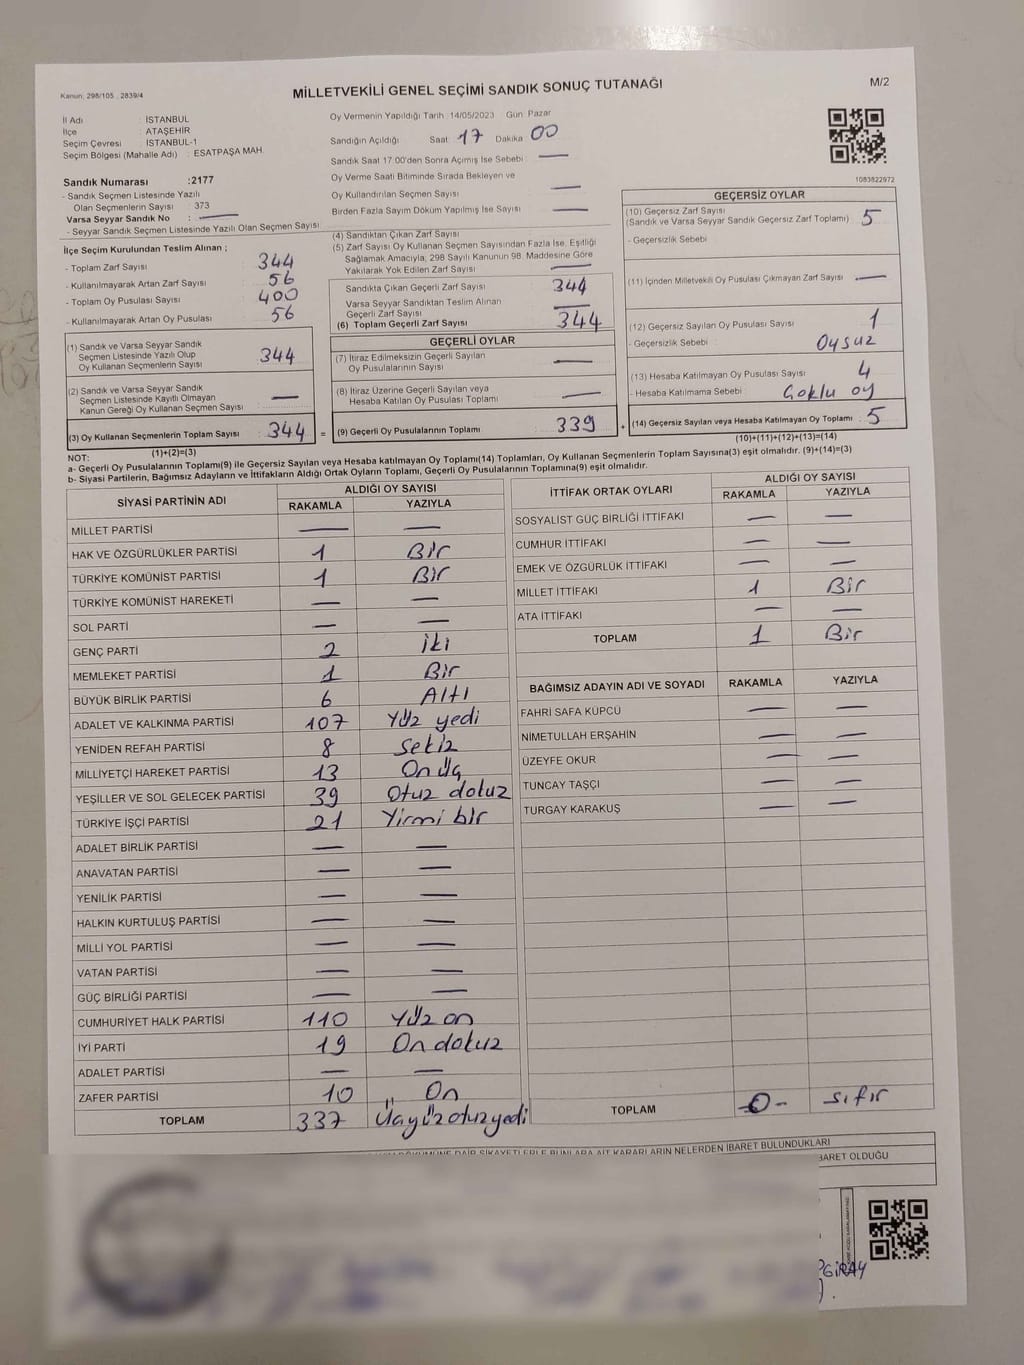 Kanun: 298/105 , 2839/4
MİLLETVEKİLİ GENEL SEÇİMİ SANDIK SONUÇ TUTANAĞI
M/2
İl Adı : İSTANBUL
İlçe : ATAŞEHİR
Seçim Çevresi : İSTANBUL-1
Seçim Bölgesi (Mahalle Adı) : ESATPAŞA MAH.
Sandık Numarası :2177
- Sandık Seçmen Listesinde Yazılı
Olan Seçmenlerin Sayısı : 373
Varsa Seyyar Sandık No : —
- Seyyar Sandık Seçmen Listesinde Yazılı Olan Seçmen Sayısı :
İlçe Seçim Kurulundan Teslim Alınan ;
- Toplam Zarf Sayısı 344
- Kullanılmayarak Artan Zarf Sayısı 56
- Toplam Oy Pusulası Sayısı 400
- Kullanılmayarak Artan Oy Pusulası 56
(1) Sandık ve Varsa Seyyar Sandık
Seçmen Listesinde Yazılı Olup
Oy Kullanan Seçmenlerin Sayısı 344
(2) Sandık ve Varsa Seyyar Sandık
Seçmen Listesinde Kayıtlı Olmayan
Kanun Gereği Oy Kullanan Seçmen Sayısı —
(3) Oy Kullanan Seçmenlerin Toplam Sayısı 344 =
(1)+(2)=(3)
Oy Vermenin Yapıldığı Tarih :14/05/2023 Gün Pazar
Sandığın Açıldığı Saat 17 Dakika 00
Sandık Saat 17:00'den Sonra Açımış İse Sebebi —
Oy Verme Saati Bitiminde Sırada Bekleyen ve
Oy Kullandırılan Seçmen Sayısı —
Birden Fazla Sayım Döküm Yapılmış İse Sayısı —
(4) Sandıktan Çıkan Zarf Sayısı
(5) Zarf Sayısı Oy Kullanan Seçmen Sayısından Fazla İse, Eşitliği
Sağlamak Amacıyla; 298 Sayılı Kanunun 98. Maddesine Göre
Yakılarak Yok Edilen Zarf Sayısı —
Sandıkta Çıkan Geçerli Zarf Sayısı 344
Varsa Seyyar Sandıktan Teslim Alınan
Geçerli Zarf Sayısı —
(6) Toplam Geçerli Zarf Sayısı 344
GEÇERLİ OYLAR
(7) İtiraz Edilmeksizin Geçerli Sayılan
Oy Pusulalarının Sayısı —
(8) İtiraz Üzerine Geçerli Sayılan veya
Hesaba Katılan Oy Pusulası Toplamı —
(9) Geçerli Oy Pusulalarının Toplamı 339 +
1083822972
GEÇERSİZ OYLAR
(10) Geçersiz Zarf Sayısı
(Sandık ve Varsa Seyyar Sandık Geçersiz Zarf Toplamı) 5
- Geçersizlik Sebebi
(11) İçinden Milletvekili Oy Pusulası Çıkmayan Zarf Sayısı —
(12) Geçersiz Sayılan Oy Pusulası Sayısı 1
- Geçersizlik Sebebi : Oysuz
(13) Hesaba Katılmayan Oy Pusulası Sayısı 4
- Hesaba Katılmama Sebebi : Çoklu oy
(14) Geçersiz Sayılan veya Hesaba Katılmayan Oy Toplamı 5
(10)+(11)+(12)+(13)=(14)
NOT:
a- Geçerli Oy Pusulalarının Toplamı(9) ile Geçersiz Sayılan veya Hesaba katılmayan Oy Toplamı(14) Toplamları, Oy Kullanan Seçmenlerin Toplam Sayısına(3) eşit olmalıdır. (9)+(14)=(3)
b- Siyasi Partilerin, Bağımsız Adayların ve İttifakların Aldığı Ortak Oyların Toplamı, Geçerli Oy Pusulalarının Toplamına(9) eşit olmalıdır.
SİYASİ PARTİNİN ADI ALDIĞI OY SAYISI
RAKAMLA YAZIYLA
MİLLET PARTİSİ — —
HAK VE ÖZGÜRLÜKLER PARTİSİ 1 Bir
TÜRKİYE KOMÜNİST PARTİSİ 1 Bir
TÜRKİYE KOMÜNİST HAREKETİ — —
SOL PARTİ — —
GENÇ PARTİ 2 İki
MEMLEKET PARTİSİ 1 Bir
BÜYÜK BİRLİK PARTİSİ 6 Altı
ADALET VE KALKINMA PARTİSİ 107 Yüz yedi
YENİDEN REFAH PARTİSİ 8 Sekiz
MİLLİYETÇİ HAREKET PARTİSİ 13 On Üç
YEŞİLLER VE SOL GELECEK PARTİSİ 39 Otuz dokuz
TÜRKİYE İŞÇİ PARTİSİ 21 Yirmi bir
ADALET BİRLİK PARTİSİ — —
ANAVATAN PARTİSİ — —
YENİLİK PARTİSİ — —
HALKIN KURTULUŞ PARTİSİ — —
MİLLİ YOL PARTİSİ — —
VATAN PARTİSİ — —
GÜÇ BİRLİĞİ PARTİSİ — —
CUMHURİYET HALK PARTİSİ 110 Yüz on
İYİ PARTİ 19 On dokuz
ADALET PARTİSİ — —
ZAFER PARTİSİ 10 On
TOPLAM 337 Üçyüzotuzyedi
İTTİFAK ORTAK OYLARI ALDIĞI OY SAYISI
RAKAMLA YAZIYLA
SOSYALİST GÜÇ BİRLİĞİ İTTİFAKI — —
CUMHUR İTTİFAKI — —
EMEK VE ÖZGÜRLÜK İTTİFAKI — —
MİLLET İTTİFAKI 1 Bir
ATA İTTİFAKI — —
TOPLAM 1 Bir
BAĞIMSIZ ADAYIN ADI VE SOYADI RAKAMLA YAZIYLA
FAHRİ SAFA KÜPCÜ — —
NİMETULLAH ERŞAHİN — —
ÜZEYFE OKUR — —
TUNCAY TAŞÇI — —
TURGAY KARAKUŞ — —
TOPLAM -0- sıfır
DÖKÜMÜNE DAİR ŞİKAYETLERLE BUNLARA AİT KARARLARIN NELERDEN İBARET BULUNDUKLARI
İBARET OLDUĞU
GİRAY